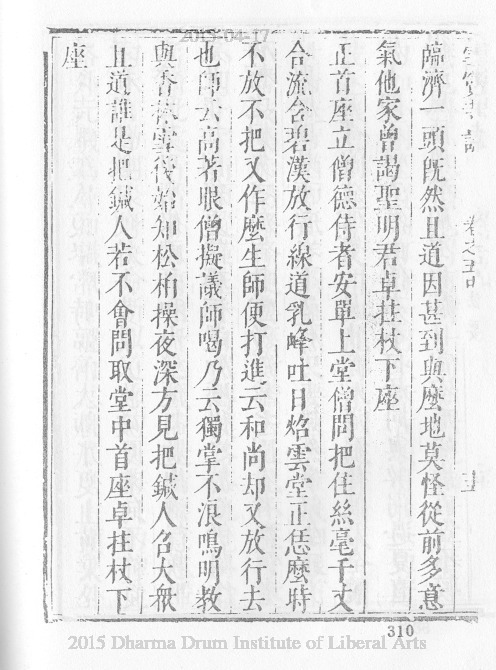 臨濟一頭既然且道因甚到與麼地莫怪從前多意
氣他家曾謁聖明君卓拄杖下座
正首座立僧德侍者安單上堂僧問把住絲毫千丈
合流含碧漢放行線道乳峰吐日焰雲堂正恁麼時
不放不把又作麼生師便打進云和尚却又放行去
也師云高著眼僧擬議師喝乃云獨掌不浪鳴明教
與香林雪後始知松柏操夜深方見把鍼人召大眾
且道誰是把鍼人若不會問取堂中首座卓拄杖下
座
卷之五
310
2015 Dharma Drum Institute of Liberal Arts